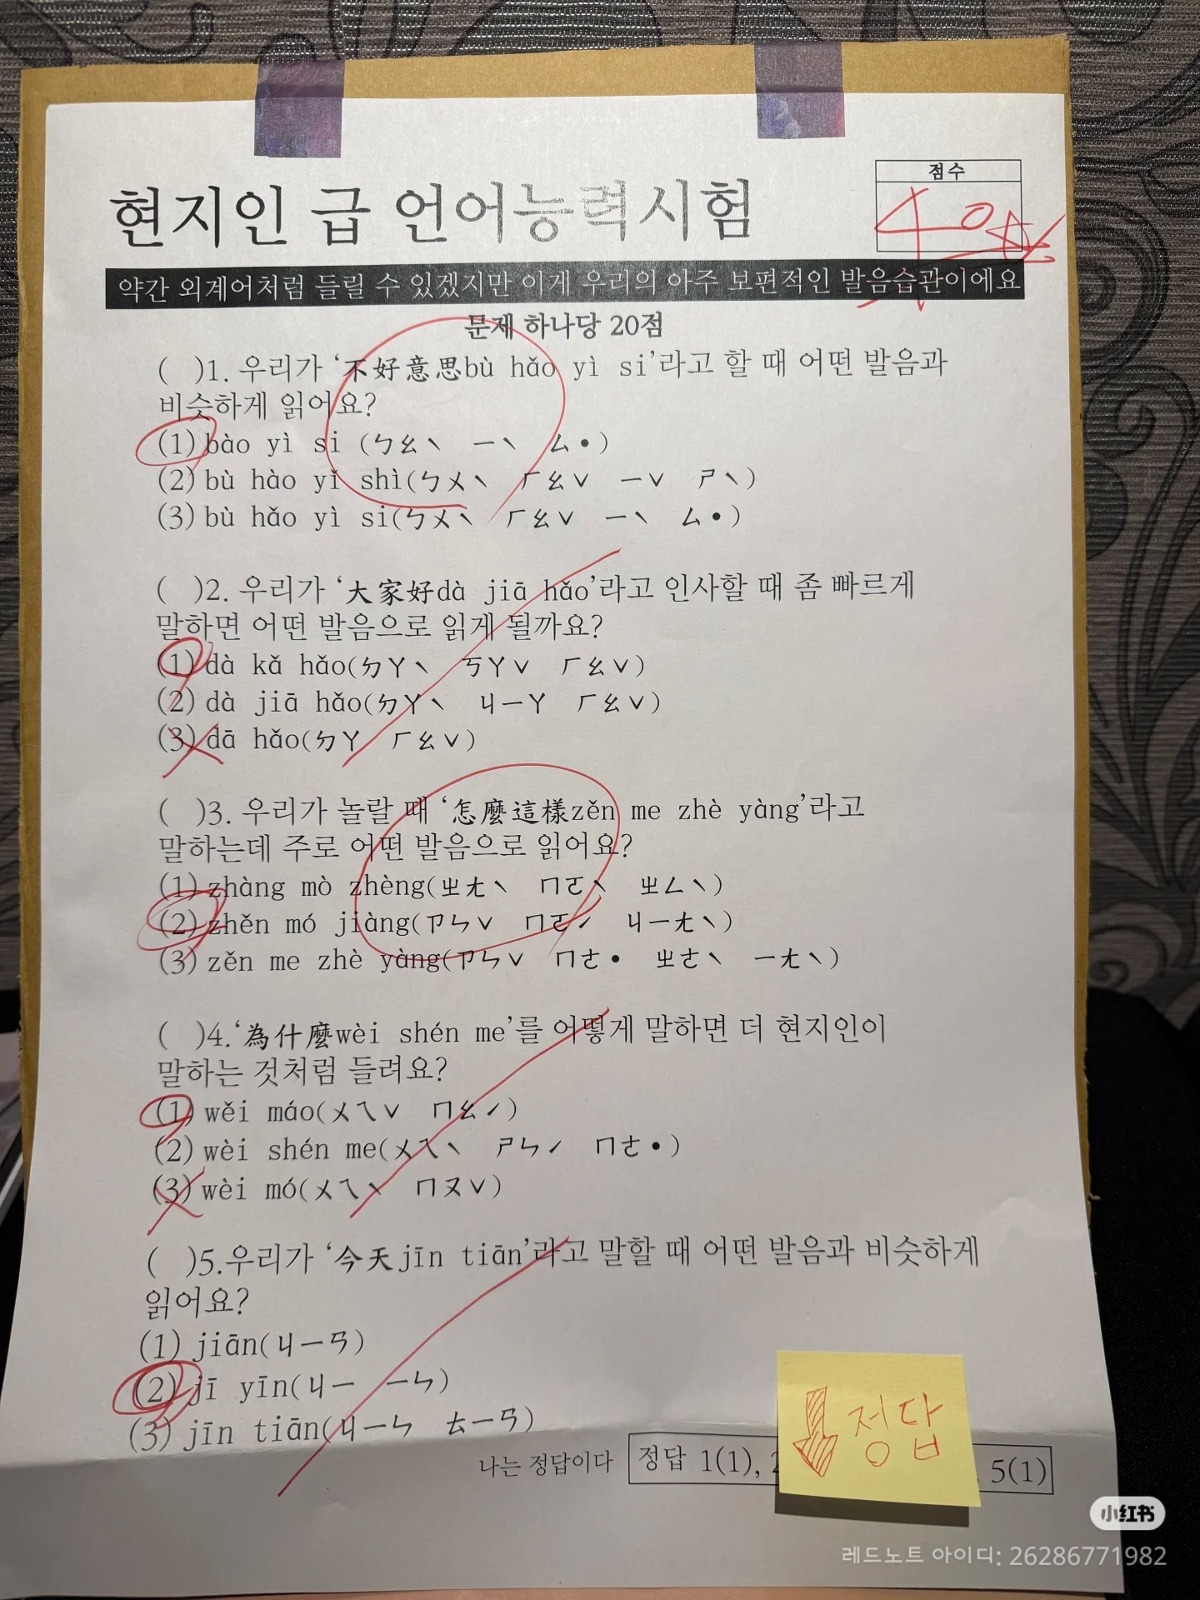 현지인 급 언어능력시험
점수
40점
약간 외계어처럼 들릴 수 있겠지만 이게 우리의 아주 보편적인 발음습관이에요
문제 하나당 20점
( )1. 우리가 ‘不好意思bù hǎo yì si’라고 할 때 어떤 발음과
비슷하게 읽어요?
(1) bào yì si (ㄅㄠˋ ㄧˋ ㄙ•)
(2) bù hào yǐ shì(ㄅㄨˋ ㄏㄠˇ ㄧˇ ㄕˋ)
(3) bù hǎo yì si(ㄅㄨˋ ㄏㄠˇ ㄧˋ ㄙ•)
( )2. 우리가 ‘大家好dà jiā hǎo’라고 인사할 때 좀 빠르게
말하면 어떤 발음으로 읽게 될까요?
(1) dà kǎ hǎo(ㄉㄚˋ ㄎㄚˇ ㄏㄠˇ)
(2) dà jiā hǎo(ㄉㄚˋ ㄐㄧㄚ ㄏㄠˇ)
(3) dā hǎo(ㄉㄚ ㄏㄠˇ)
( )3. 우리가 놀랄 때 ‘怎麼這樣zěn me zhè yàng’라고
말하는데 주로 어떤 발음으로 읽어요?
(1) zhàng mò zhèng(ㄓㄤˋ ㄇㄛˋ ㄓㄥˋ)
(2) zhěn mó jiàng(ㄗㄣˇ ㄇㄛˊ ㄐㄧㄤˋ)
(3) zěn me zhè yàng(ㄗㄣˇ ㄇㄜ• ㄓㄜˋ ㄧㄤˋ)
( )4.‘為什麼wèi shén me’를 어떻게 말하면 더 현지인이
말하는 것처럼 들려요?
(1) wěi máo(ㄨㄟˇ ㄇㄠˊ)
(2) wèi shén me(ㄨㄟˋ ㄕㄣˊ ㄇㄜ•)
(3) wèi mó(ㄨㄟˋ ㄇㄡˇ)
( )5.우리가 ‘今天jīn tiān’라고 말할 때 어떤 발음과 비슷하게
읽어요?
(1) jiān(ㄐㄧㄢ)
(2) jī yīn(ㄐㄧ ㄧㄣ)
(3) jīn tiān(ㄐㄧㄣ ㄊㄧㄢ)
나는 정답이다 정답 1(1), 5(1)
정답
小红书
레드노트 아이디: 26286771982